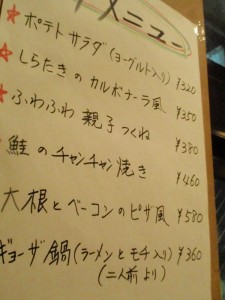 メニュー
★ ポテトサラダ(ヨーグルト入り) ¥320
★ しらたきのカルボナーラ風 ¥350
★ ふわふわ 親子つくね ¥380
鮭のチャンチャン焼き ¥460
大根とベーコンのピザ風 ¥580
ギョーザ鍋(ラーメンとモチ入り) ¥360
(二人前より)